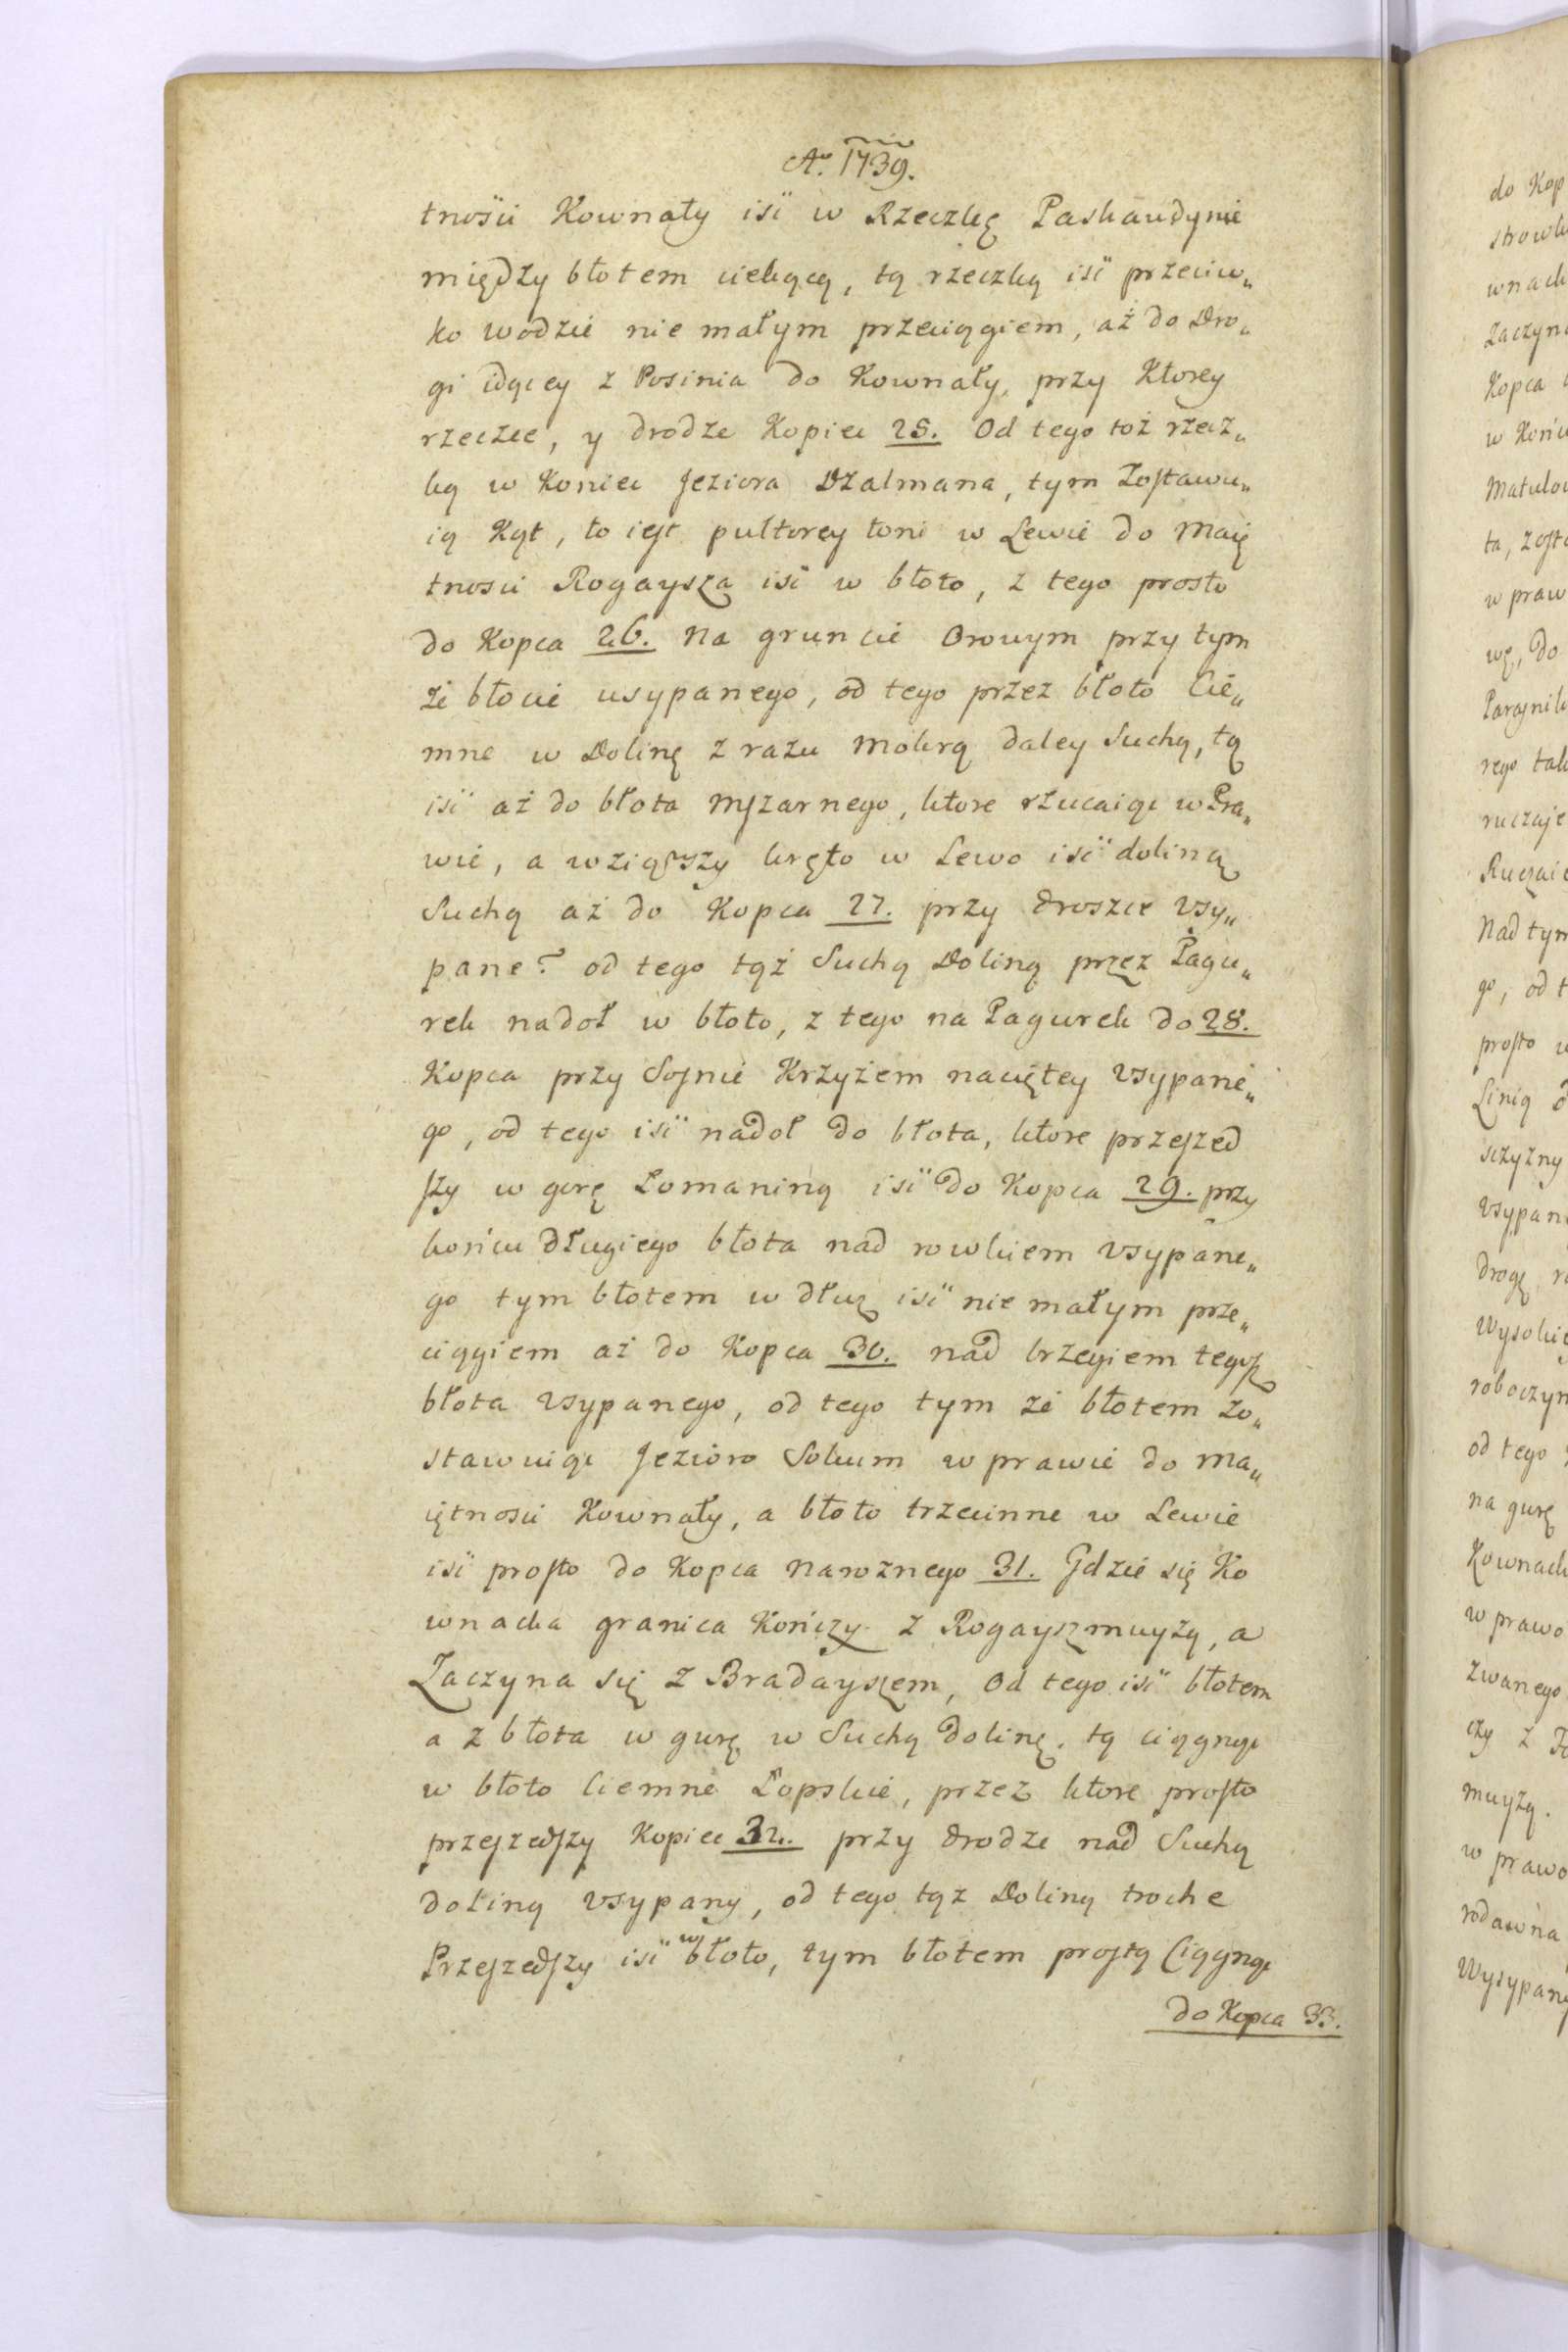 Aº. 1739.
tności Kownały iść w Rzeczkę Paskaudynie
między błotem ciekącą, tą rzeczką iść przeciw„
ko wodzie nie małym przeciągiem, aż do Dro„
gi idącey z Posinia do Kownały, przy Ktorey
rzeczce, y drodze Kopiec 25. Od tego toż rzecz„
ką w Koniec Jeziora Dzalmana, tym Zostawu„
ią Kąt, to iest pułtorey toni w Lewie do Maię
tnosci Rogaysza iść w błoto, z tego prosto
do Kopca 26. na gruncie Orowym przy tym
że błocie usypanego, od tego przez błoto Cie„
mne w Dolinę z razu mokrą daley Suchą, tą
iść aż do błota Mszarnego, ktore rzucaiąc w Pra„
wie, a wziąwszy kręto w Lewo iść doliną
Suchą aż do Kopca 27. przy droszce Vsy„
pane? od tego tąż Suchą Doliną przez Pagu„
rek nadoł w błoto, z tego na Pagurek do 28.
Kopca przy Sosnie Krzyżem naciętey Vsypane„
go, od tego iść nadoł do błota, ktore przeszed
szy w gorę Łomaniną iść do Kopca 29. przy
końcu długiego błota nad rowkiem vsypane„
go tym błotem w dłuz iść nie małym prze„
ciągiem aż do Kopca 30. nad brzegiem tegoż
błota vsypanego, od tego tym że błotem Zo„
stawuiąc Jezioro Sokum w prawie do Ma„
iętnosci Kownały, a błoto trzcinne w Lewie
iść prosto do Kopca narożnego 31. Gdzie się Ko
wnacka granica Kończy z Rogayszmuyżą, a
Zaczyna się z Bradayszem, Od tego iść błotem
a z błota w gurę w Suchą dolinę, tą ciągnąc
w błoto Ciemne Łopskie, przez ktore prosto
przeszedszy Kopiec 32. przy drodze nad Suchą
doliną vsypany, od tego tąż Doliną troche
Przeszedszy iść w błoto, tym błotem prostą Ciągnąc
do Kopca 33.
do Kop
strowk
wnack
Zaczyna
Kopca
w Końcu
Matulow
ta, zosta
w praw
wę, do
Parasnik
rego tak
ruczaje
Ruczaie
Nad tym
go, od t
prosto
Linią
sczyzny
vsypan
drogę
Wysokie
roboczym
od tego
na gurę
Kownack
w prawo
zwanego
czy z
muyżą.
w prawo
rodawna
Wysypany